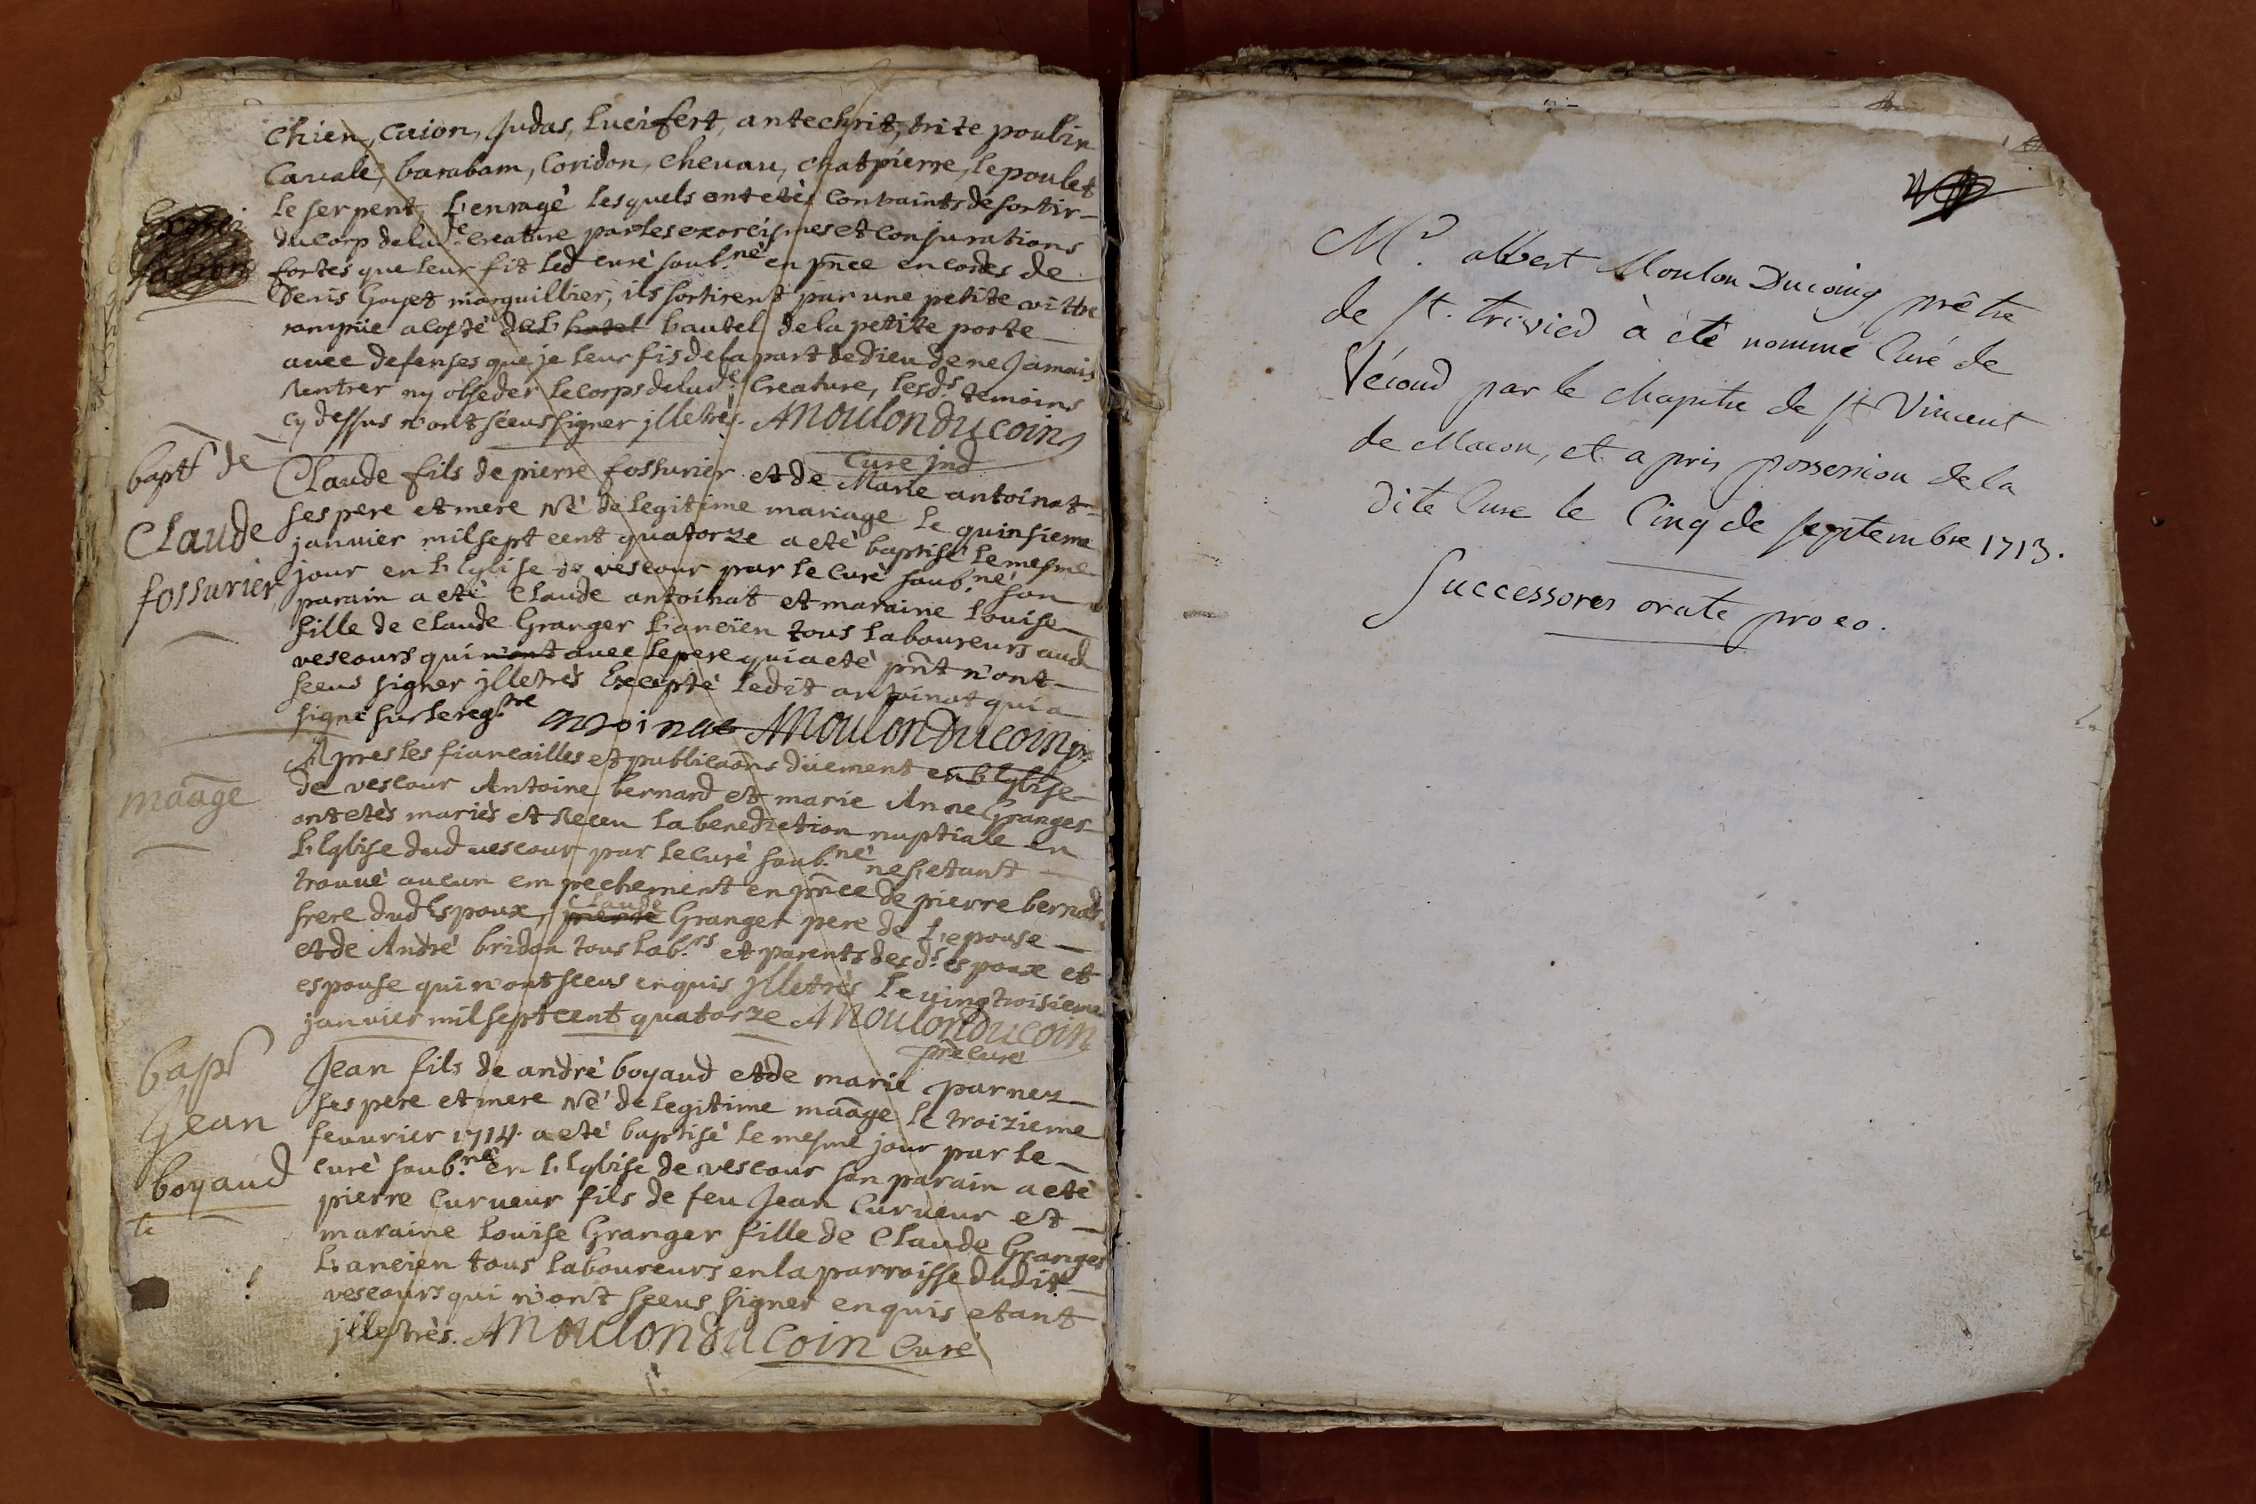 Chien, Caion, Judas, Lucifert, antechrit, trite poulin
Cavale, barabam, Coridon, chevau, chatpierre, le poulet
le serpent, L'enragè lesquels ont etès Contraints de sortir
du corp de lad.e Creature par les exorcismes et conjurations
fortes que leur fit led curè soub.nè en pnce encores de
Denis Goyet marguillier, ils sortirent par une petite vittre
rompüe a costè de L'hotel L'autel de la petite porte
avec defenses que je leur fis de la part de Dieu de ne Jamais
Rentrer ny obseder le corps de lad.e Creature, lesd.s temoins
cy dessus n'ont sceus signer jlletrès. AMoulonducoin
Cure jnd
bapt de
Claude
fossurier
Claude fils de pierre fossurier et de Marie antoinat
ses pere et mere Nè de legitime mariage le quinsieme
janvier mil sept cent quatorze a etè baptisè le mesme
jour en L'Eglise de vescour par le Curè soub.nè son
parain a etè Claude antoinat et maraine Louise
fille de Claude Granger L'ancïen tous laboureurs aud
vescours qui n'ont avec le pere qui a etè pnt n'ont
sceus signer jlletrès Exceptè ledit antoinat qui a
signè sur le reg.tre antoinat AMoulonducoin
maage
Apres les fiancailles et publicaons düement en L'Eglise
de vescour Antoine bernard et marie Anne Granger
ont etès mariès et Receu la benediction nuptiale en
L'Eglise dud vescour par le Curè soub.nè ne s'etant
trouvè aucun empechement en pnce de pierre bernard
frere dud Espoux, Claude Granger pere de L'epouse
et de Andrè bridon tous lab.rs et parents desd.s espoux et
espouse qui n'ont sceus enquis jlletrès le vingtroisieme
janvier mil sept cent quatorze AMoulonducoin
pre curè
bap
Jean
boyaud
Jean fils de andrè boyaud et de marie parnez
ses pere et mere Nè de legitime maage le troizieme
fevvrier 1714. a etè baptisè le mesme jour par le
curè soub.nè en L'Eglise de vescour son parain a etè
pierre Curveur fils de feu Jean Curveur et
maraine Louise Granger fille de Claude Granger
L'ancien tous laboureurs en la parroisse dudit
vescours qui n'ont sceus signer enquis etant
jllestrès. AMoulonducoin Curè
Mr. albert Moulon Ducoing prêtre
de St. trivied à été nommé Curé de
Vécoud par le chapitre de St Vincent
de Macon, et a pris possession de la
dite Cure le Cinq de septembre 1713.
Successores orate pro eo.